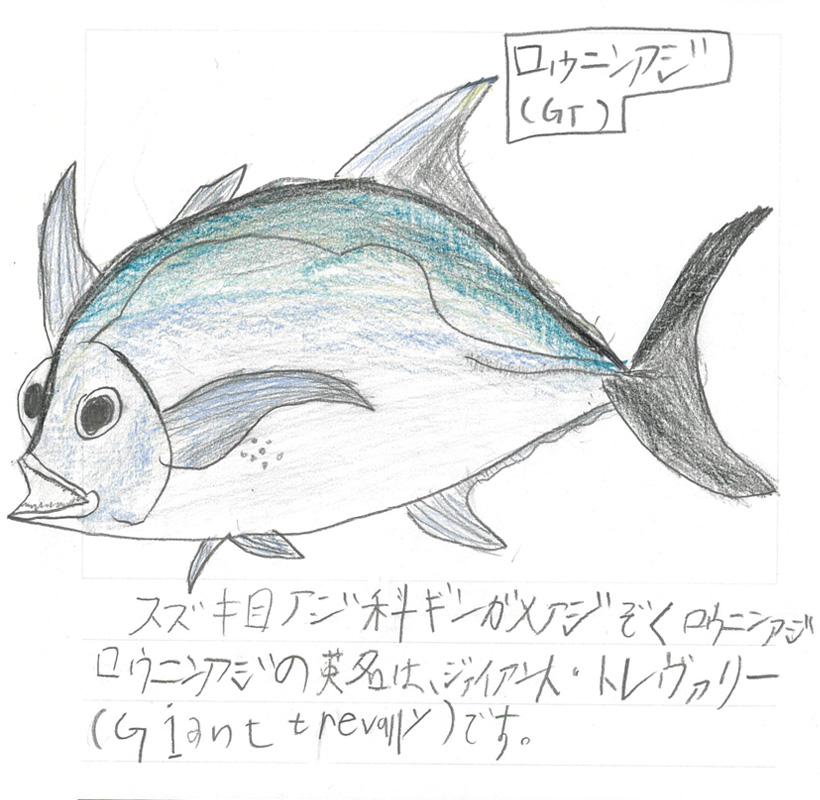 ロウニンアジ
(GT)
スズキ目アジ科ギンガメアジぞくロウニンアジ
ロウニンアジの英名は、ジャイアント・トレヴァリー
(Giant trevally)です。